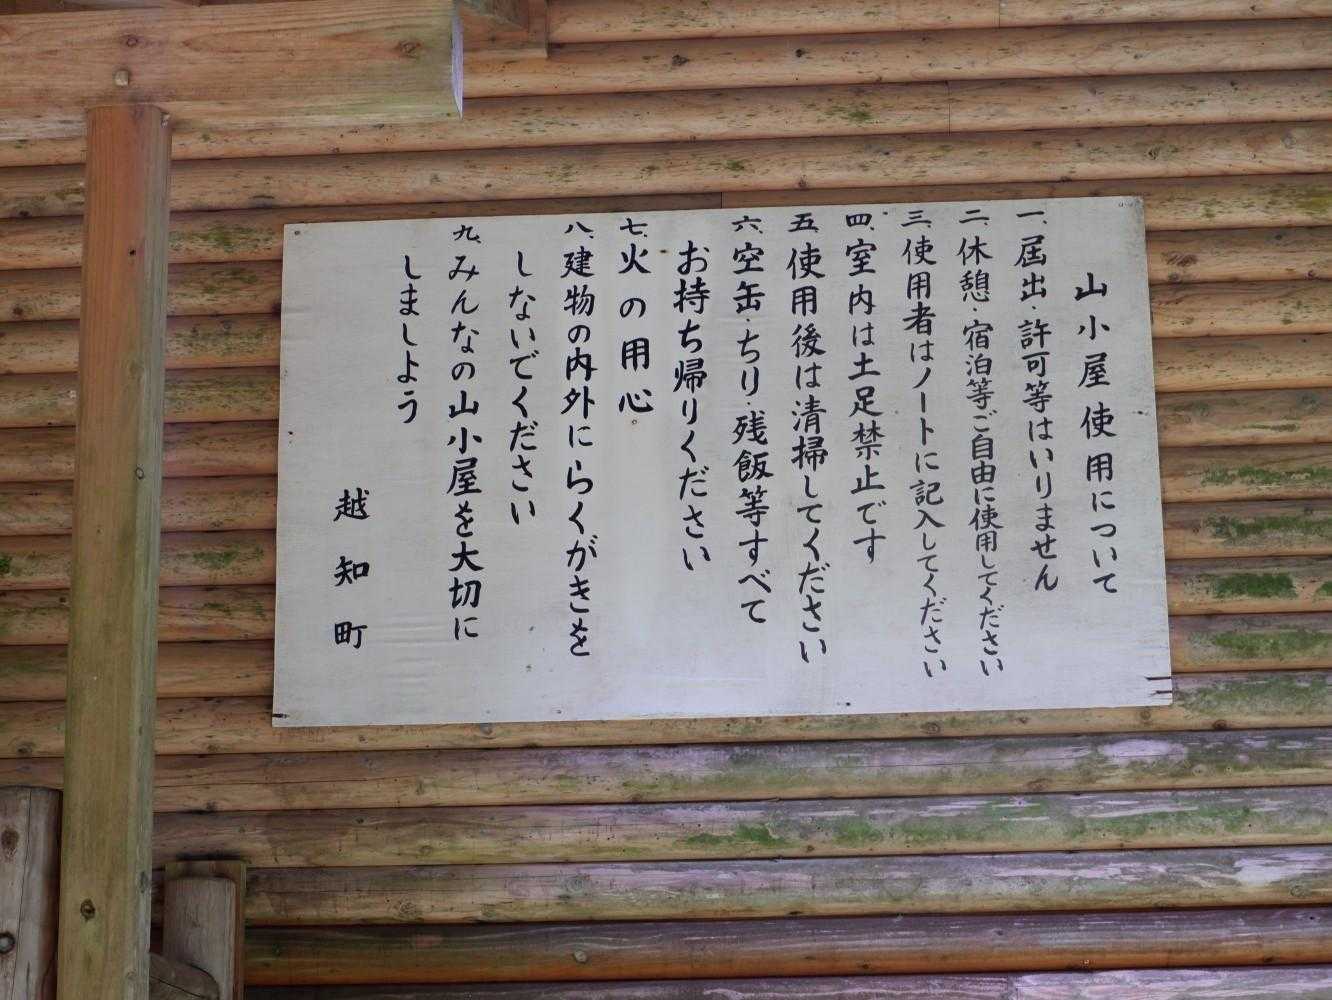 山小屋使用について
一、届出・許可等はいりません
二、休憩・宿泊等ご自由に使用してください
三、使用者はノートに記入してください
四、室内は土足禁止です
五、使用後は清掃してください
六、空缶・ちり・残飯等すべて
お持ち帰りください
七、火の用心
八、建物の内外にらくがきを
しないでください
九、みんなの山小屋を大切に
しましよう
越知町